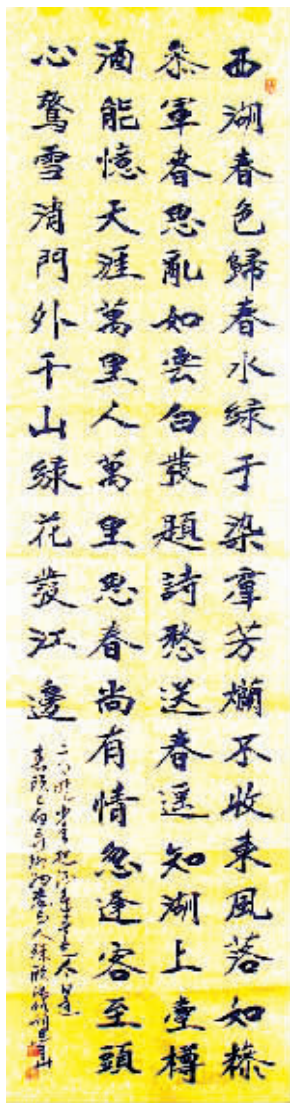 西湖春色歸春水綠于染羣芳爛不收東風落如糝
叅軍春思亂如雲白發題詩愁送春遥知湖上壹樽
酒能憶天涯萬里人萬里思春尚有情忽逢客至頭
心驚雪消門外千山綠花發江邊
二月晴少年把酒逢春色今日逢
春頭已白异鄉物態与人殊